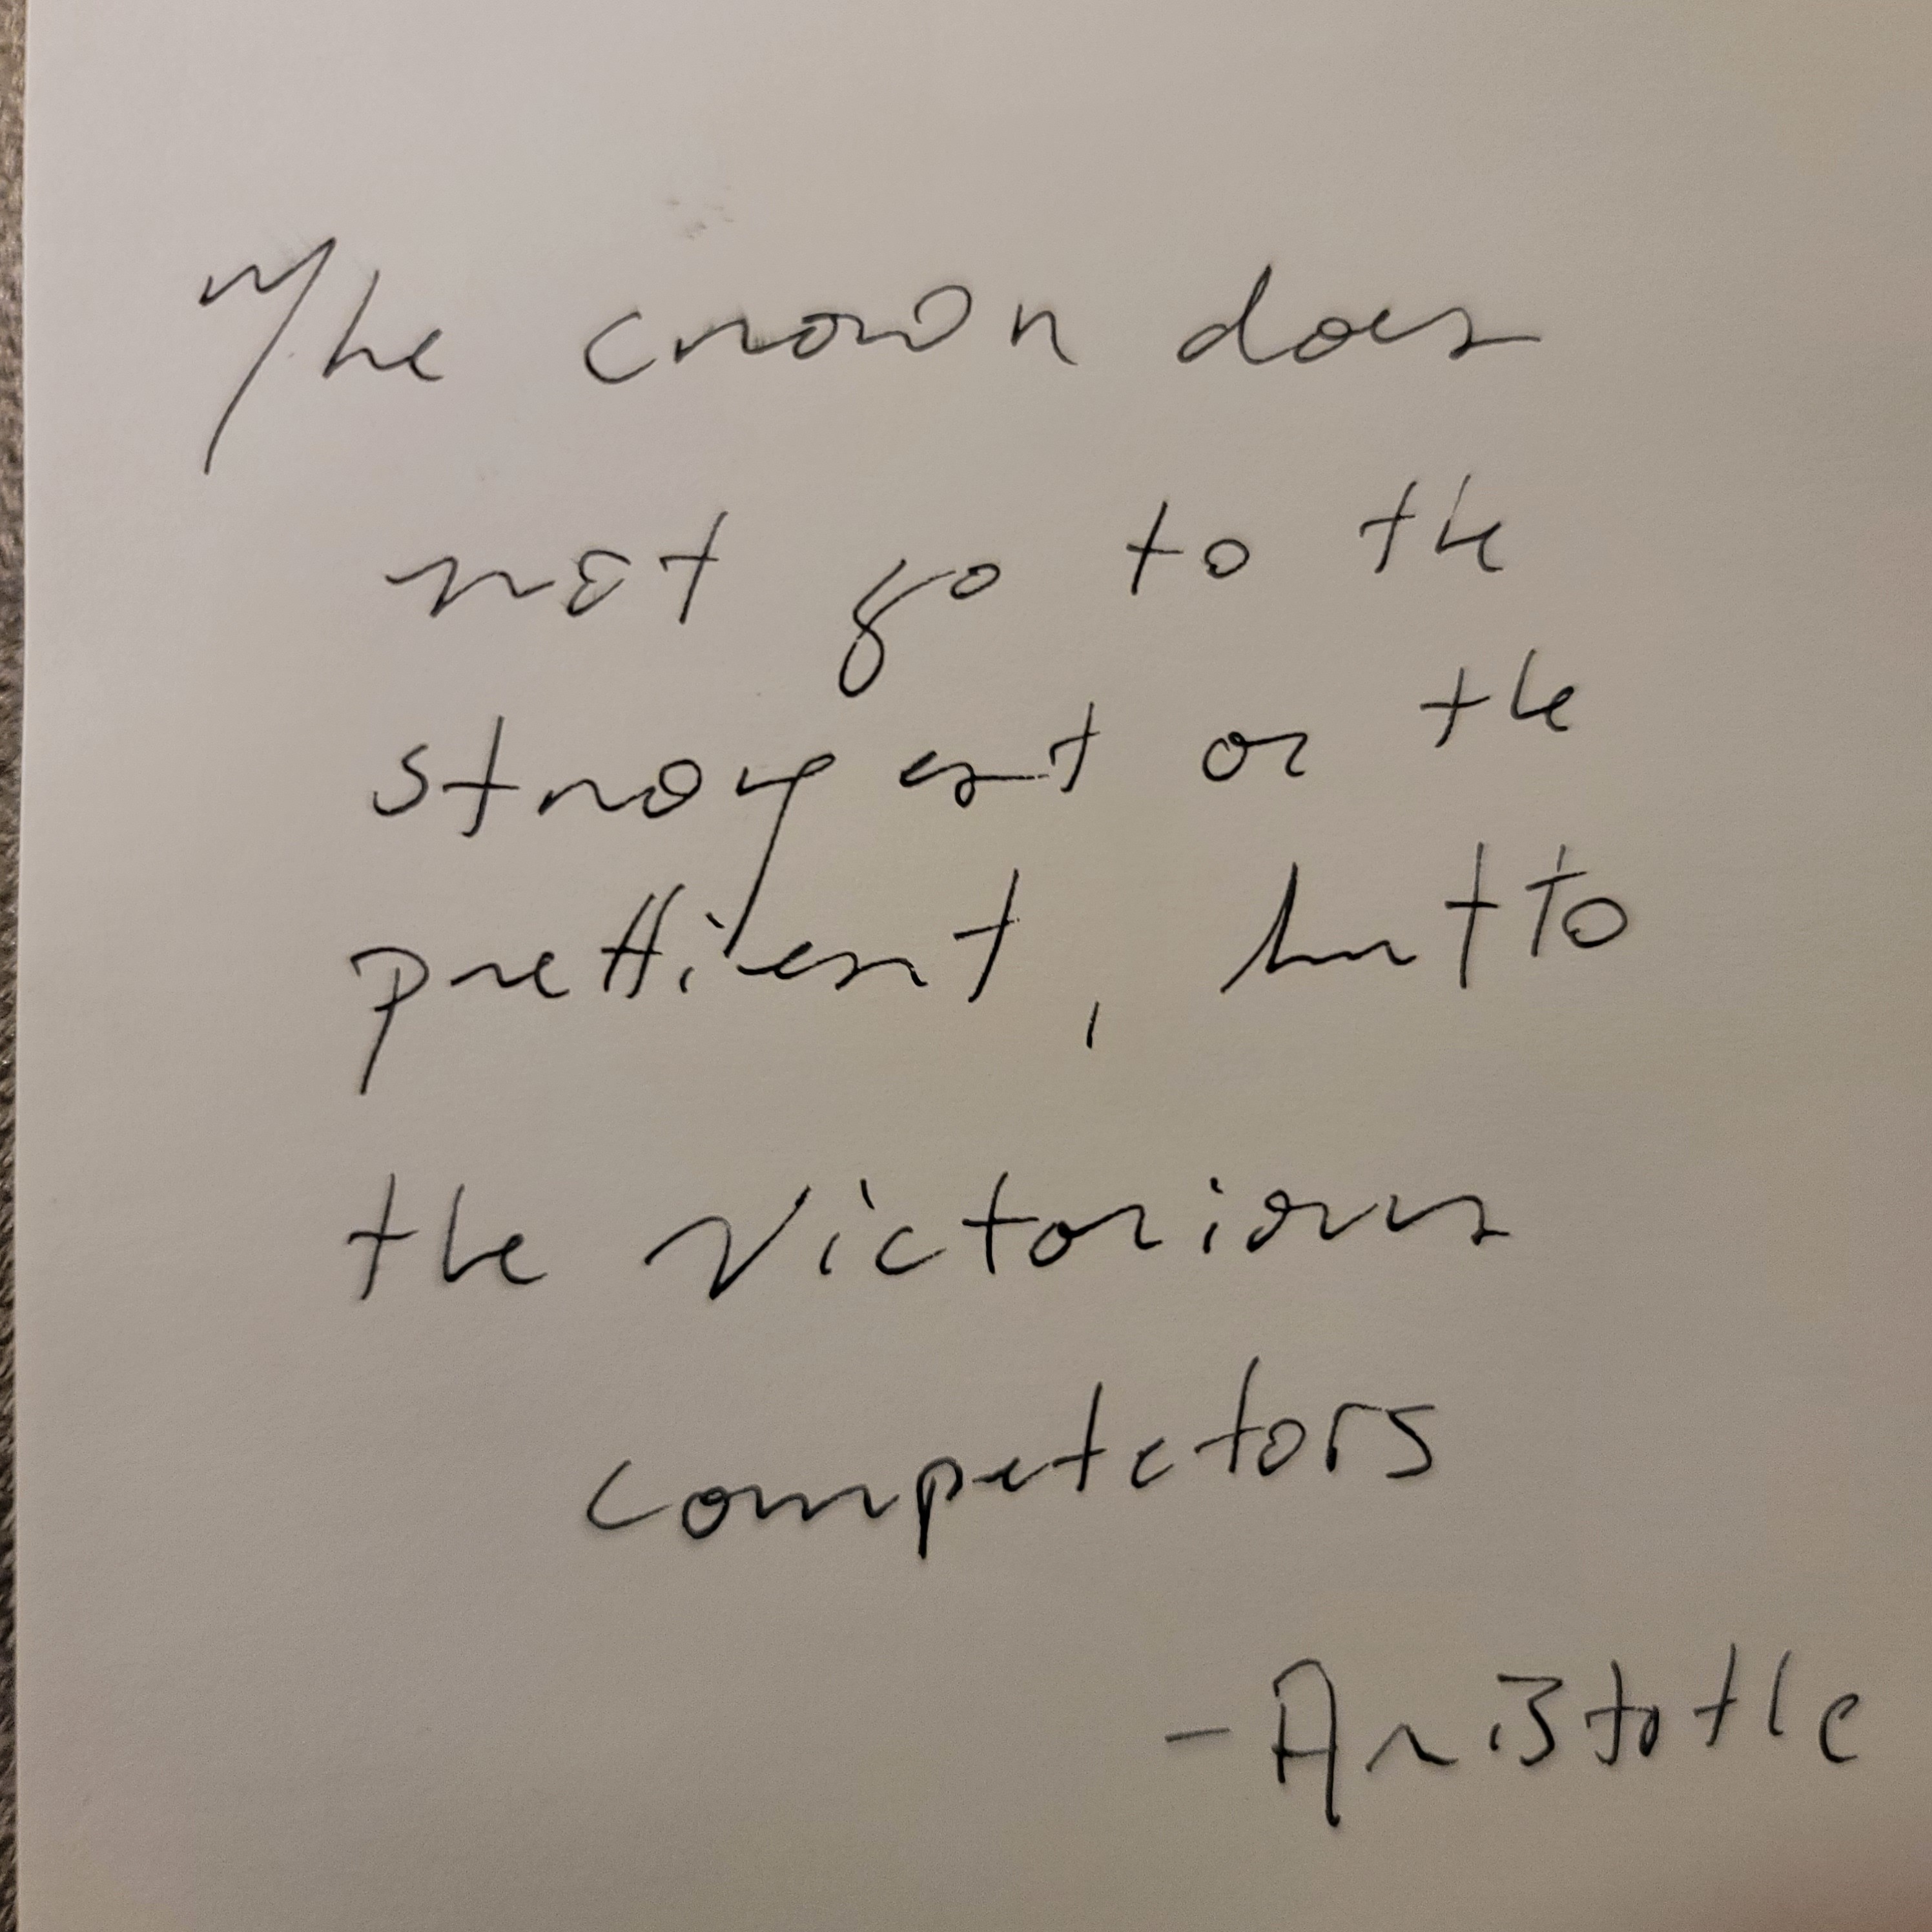 The crown does
not go to the
strongest or the
prettiest, but to
the victorious
competetors
- Aristotle